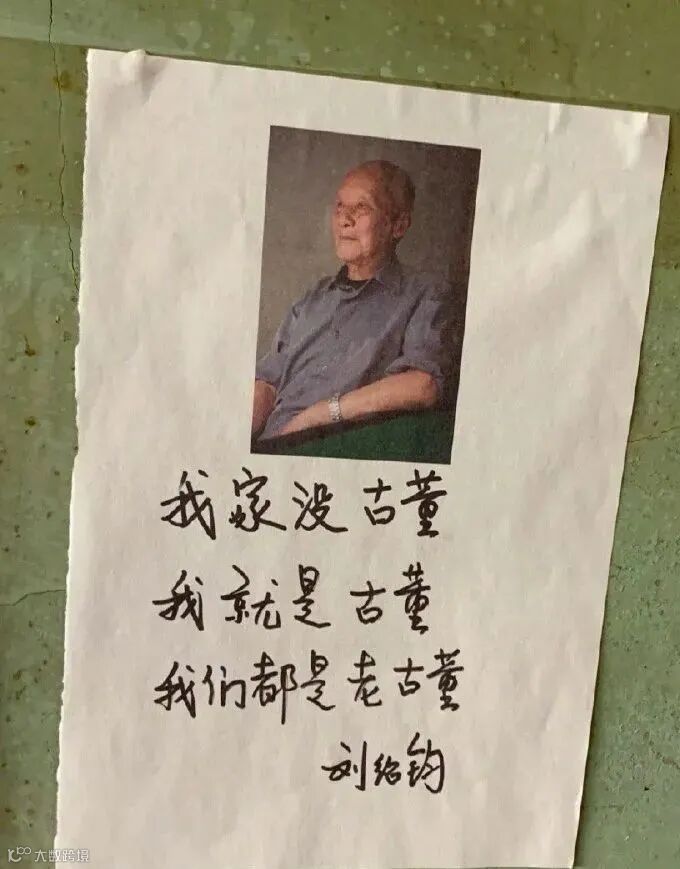 我家没古董
我就是古董
我们都是老古董
刘绍钧
大数跨境